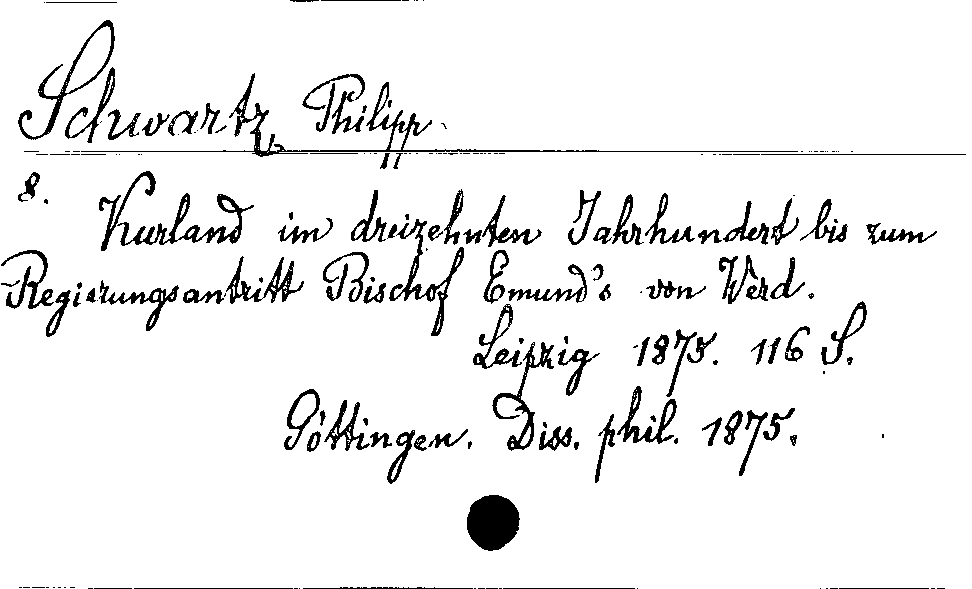 Schwartz, Philipp.
8.
Kurland im dreizehnten Jahrhundert bis zum
Regierungsantritt Bischof Emund's von Werd.
Leipzig 1875. 116 S.
Göttingen. Diss. phil. 1875.